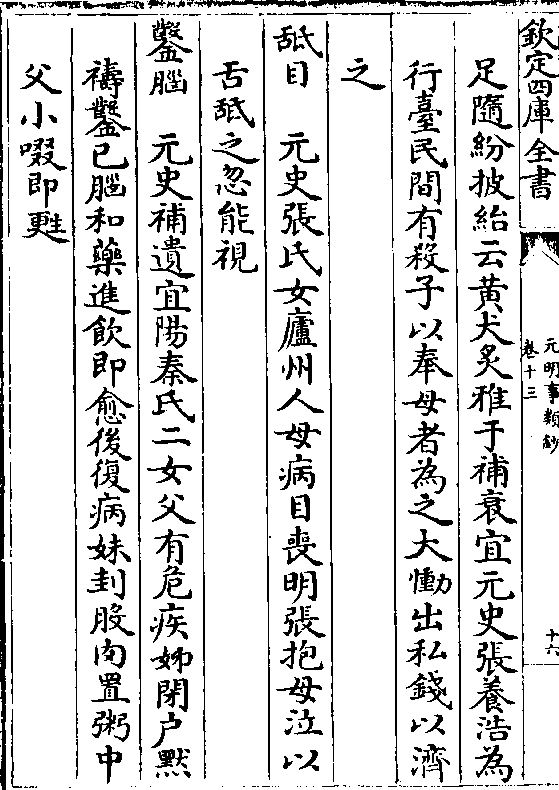 欽定四庫全書
元明事類鈔
卷十三
十六
足隨紛披紿云黃犬炙雅于補衰宜元史張養浩為
行臺民間有殺子以奉母者為之大慟出私錢以濟
之
舐目　元史張氏女廬州人母病目喪明張抱母泣以
舌舐之忽能視
鑿腦　元史補遺宜陽秦氏二女父有危疾姊閉户默
禱鑿已腦和藥進飲即愈後復病妹刲股肉置粥中
父小啜即甦